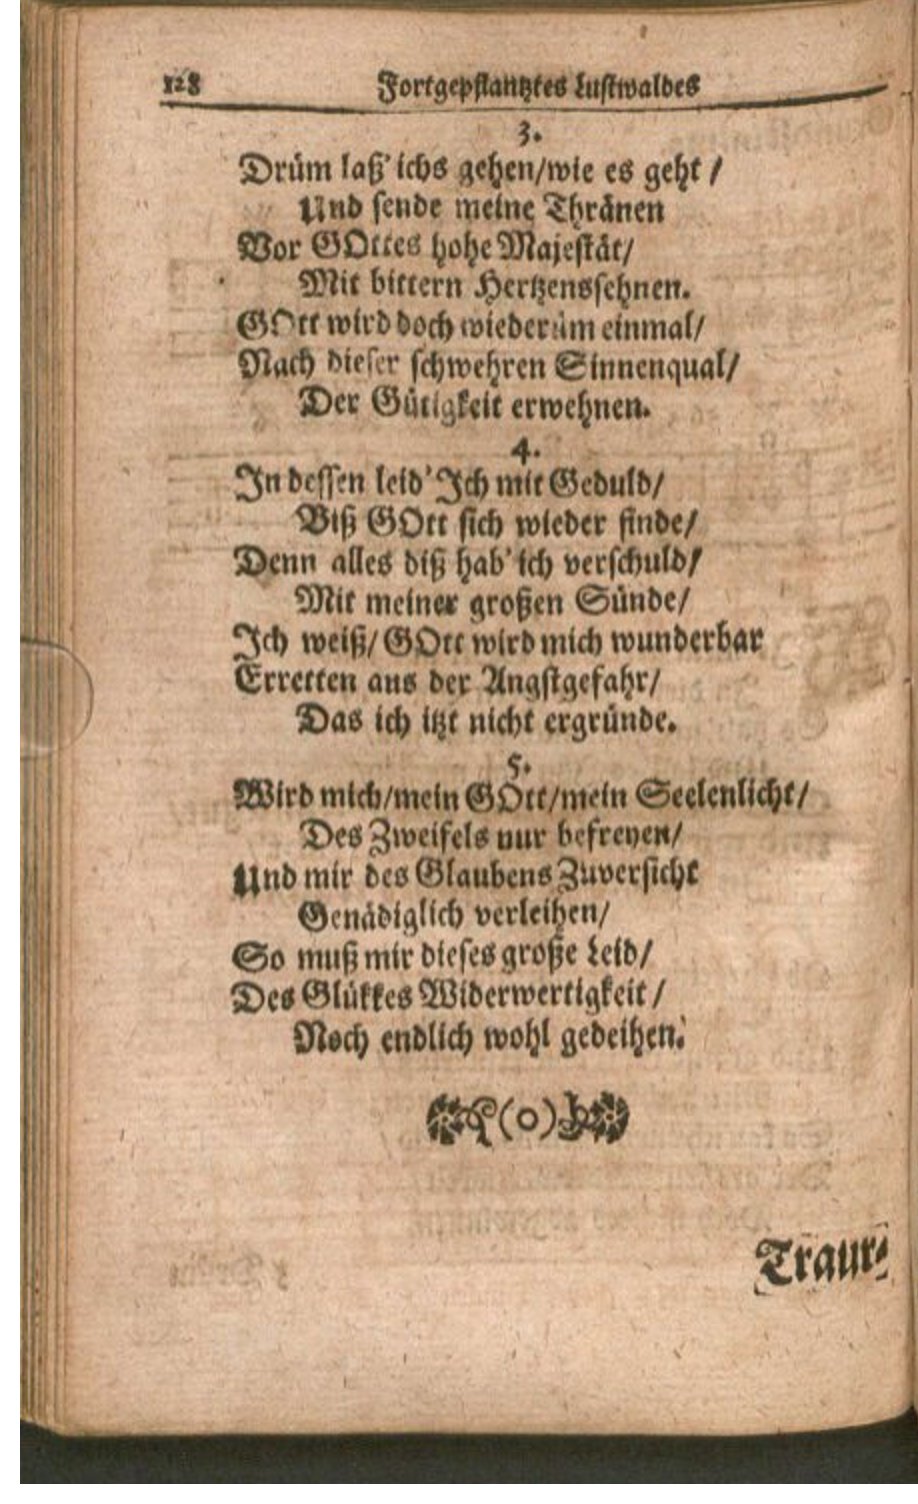 128 Fortgepflantztes Lustwaldes
3.
Drüm laß' ichs gehen/wie es geht /
Und sende meine Thränen
Vor GOttes hohe Majestät/
Mit bittern Hertzenssehnen.
GOtt wird doch wiederüm einmal/
Nach dieser schwehren Sinnenqual/
Der Gütigkeit erwehnen.
4.
In dessen leid' Ich mit Geduld/
Biß GOtt sich wieder finde/
Denn alles diß hab' ich verschuld/
Mit meiner großen Sünde/
Ich weiß/ GOtt wird mich wunderbar
Erretten aus der Angstgefahr/
Das ich itzt nicht ergründe.
5.
Wird mich/mein GOtt/mein Seelenlicht/
Des Zweifels nur befreyen/
Und mir des Glaubens Zuversicht
Genädiglich verleihen/
So muß mir dieses große Leid/
Des Glükkes Widerwertigkeit /
Noch endlich wohl gedeihen.
(o)
Traur-